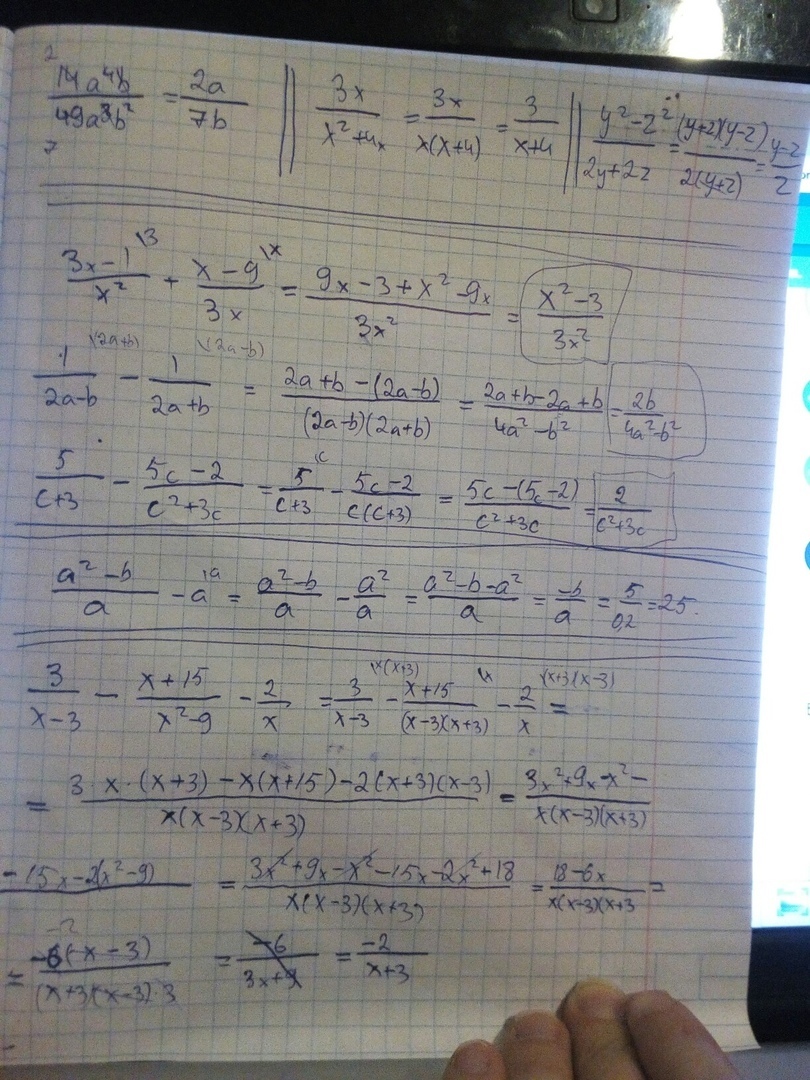 14a⁴b/49a³b² = 2a/7b || 3x/(x²+4x) = 3x/x(x+4) = 3/(x+4) || (y²-z²)/(2y+2z) = (y+z)(y-z)/2(y+z) = (y-z)/2
(3x-1)/x² \3 + (x-9)/3x \x = (9x-3+x²-9x)/3x² = (x²-3)/3x²
1/(2a-b) \(2a+b) - 1/(2a+b) \(2a-b) = (2a+b-(2a-b))/(2a-b)(2a+b) = (2a+b-2a+b)/(4a²-b²) = 2b/(4a²-b²)
5/(c+3) - (5c-2)/(c²+3c) = 5/(c+3) \c - (5c-2)/c(c+3) = (5c-(5c-2))/(c²+3c) = 2/(c²+3c)
(a²-b)/a - a \a = (a²-b)/a - a²/a = (a²-b-a²)/a = -b/a = 5/0,2 = 25.
3/(x-3) - (x+15)/(x²-9) - 2/x = 3/(x-3) \x(x+3) - (x+15)/(x-3)(x+3) \x - 2/x \(x+3)(x-3) =
= (3·x·(x+3) - x(x+15) - 2(x+3)(x-3))/x(x-3)(x+3) = (3x²+9x-x²-)/x(x-3)(x+3)
-15x-2(x²-9) = (3x²+9x-x²-15x-2x²+18)/x(x-3)(x+3) = (18-6x)/x(x-3)(x+3 =
= -6(-x-3)/(x+3)(x-3)·3 = -6/(3x+9) = -2/(x+3)